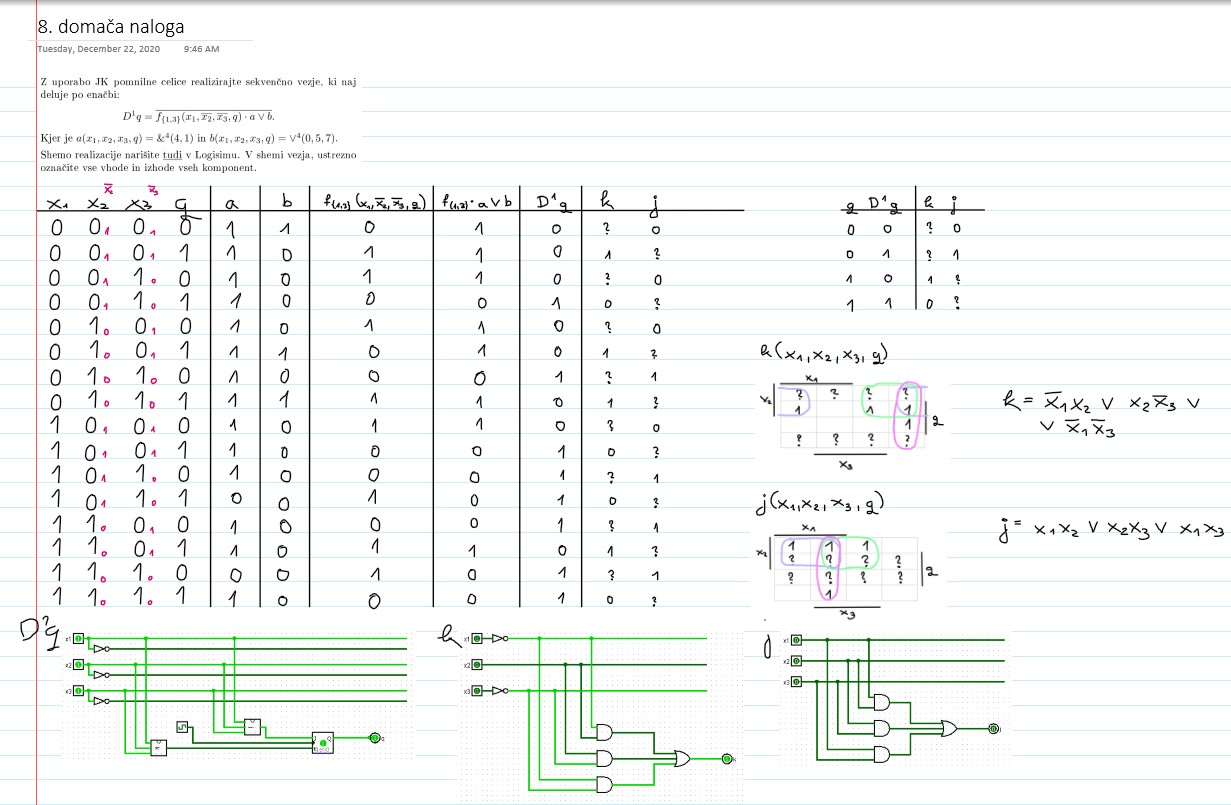 8. domača naloga
Tuesday, December 22, 2020 9:46 AM
Z uporabo JK pomnilne celice realizirajte sekvenčno vezje, ki naj
deluje po enačbi:
D¹q = \overline{f_{{1,3}}(x₁, x̅₂, x̅₃, q) · a ∨ b}.
Kjer je a(x₁, x₂, x₃, q) = &⁴(4, 1) in b(x₁, x₂, x₃, q) = ∨⁴(0, 5, 7).
Shemo realizacije narišite tudi v Logisimu. V shemi vezja, ustrezno
označite vse vhode in izhode vseh komponent.
x̅₂ x̅₃
x₁ x₂ x₃ q a b f_{{1,3}}(x₁, x̅₂, x̅₃, q) f_{{1,3}} · a ∨ b D¹q k j
0 0 1 0 1 0 1 1 0 1 0 ? 0
0 0 1 0 1 1 1 0 1 1 0 1 ?
0 0 1 1 0 0 1 0 1 1 0 ? 0
0 0 1 1 0 1 1 0 0 0 1 0 ?
0 1 0 0 1 0 1 0 1 1 0 ? 0
0 1 0 0 1 1 1 1 0 1 0 1 ?
0 1 0 1 0 0 1 0 0 0 1 ? 1
0 1 0 1 0 1 1 1 1 1 0 1 ?
1 0 1 0 1 0 1 0 1 1 0 ? 0
1 0 1 0 1 1 1 0 0 0 1 0 ?
1 0 1 1 0 0 1 0 0 0 1 ? 1
1 0 1 1 0 1 0 0 1 0 1 0 ?
1 1 0 0 1 0 1 0 0 0 1 ? 1
1 1 0 0 1 1 1 0 1 1 0 1 ?
1 1 0 1 0 0 0 0 1 0 1 ? 1
1 1 0 1 0 1 1 0 0 0 1 0 ?
q D¹q k j
0 0 ? 0
0 1 ? 1
1 0 1 ?
1 1 0 ?
k(x₁, x₂, x₃, q)
x₁
x₂ ? ? ? ?
1 1 1 q
1
? ? ? ?
x₃
k = x̅₁x₂ ∨ x₂x̅₃ ∨
∨ x̅₁x̅₃
j(x₁, x₂, x₃, q)
x₁
x₂ 1 1 1
? ? ? ? q
? ? ? ?
1
x₃
j = x₁x₂ ∨ x₂x₃ ∨ x₁x₃
D¹q
x1
x2
x3
k
x1
x2
x3
j
x1
x2
x3